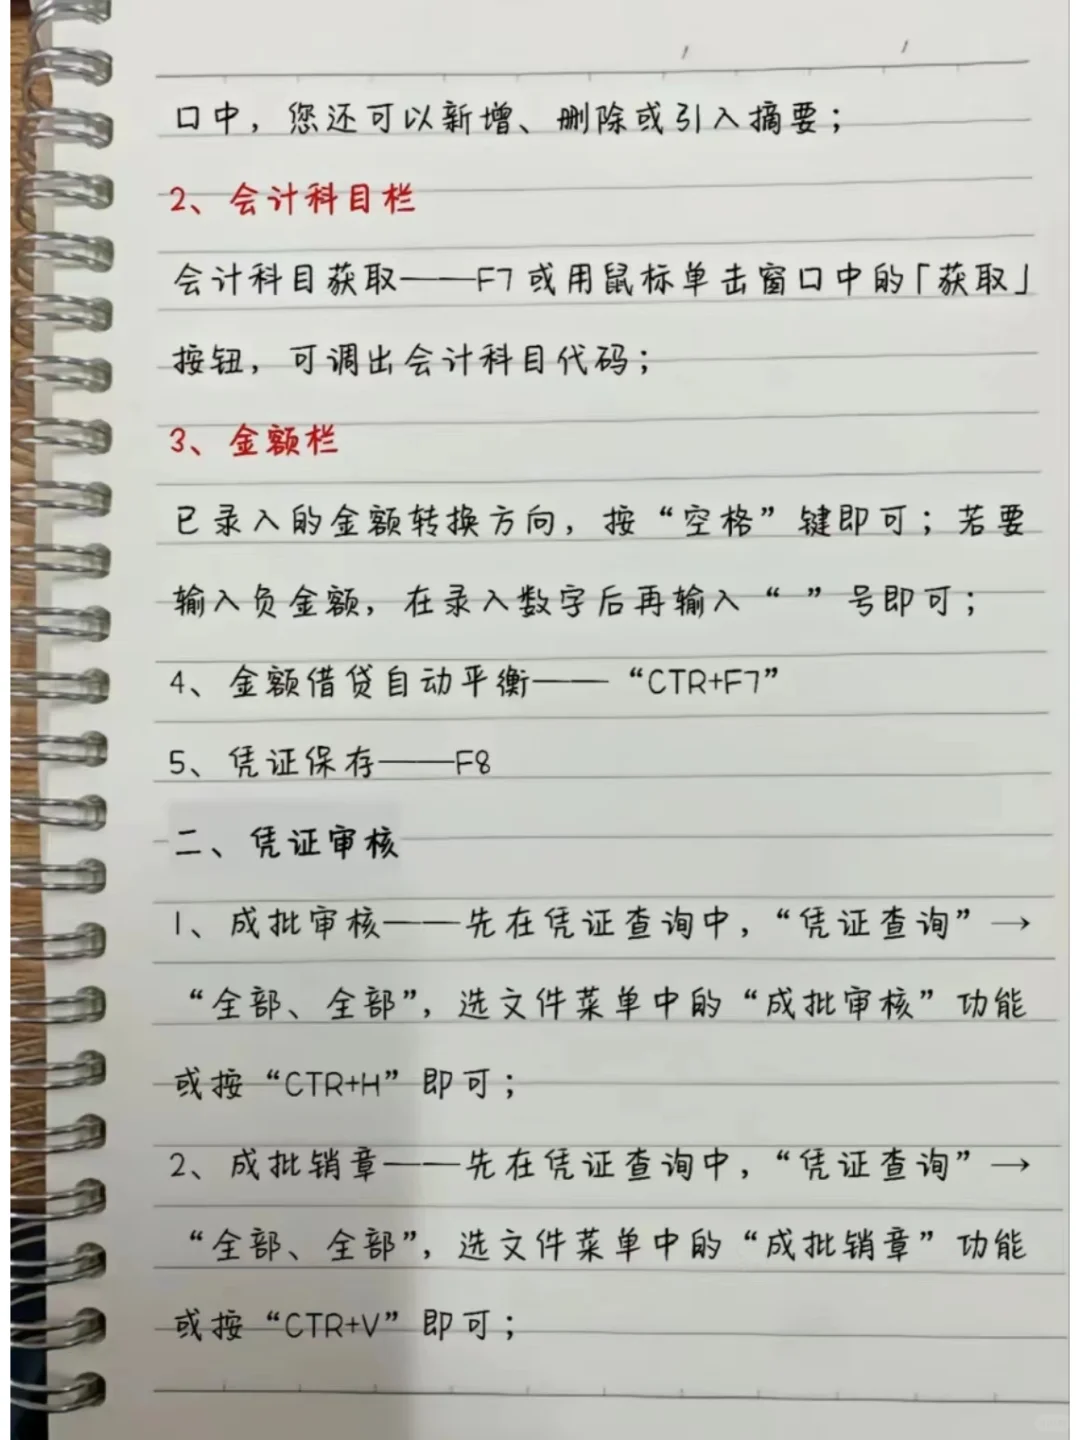 口中，您还可以新增、删除或引入摘要；
2、会计科目栏
会计科目获取——F7或用鼠标单击窗口中的「获取」
按钮，可调出会计科目代码；
3、金额栏
已录入的金额转换方向，按“空格”键即可；若要
输入负金额，在录入数字后再输入“ ”号即可；
4、金额借贷自动平衡——“CTR+F7”
5、凭证保存——F8
二、凭证审核
1、成批审核——先在凭证查询中，“凭证查询”→
“全部、全部”，选文件菜单中的“成批审核”功能
或按“CTR+H”即可；
2、成批销章——先在凭证查询中，“凭证查询”→
“全部、全部”，选文件菜单中的“成批销章”功能
或按“CTR+V”即可；